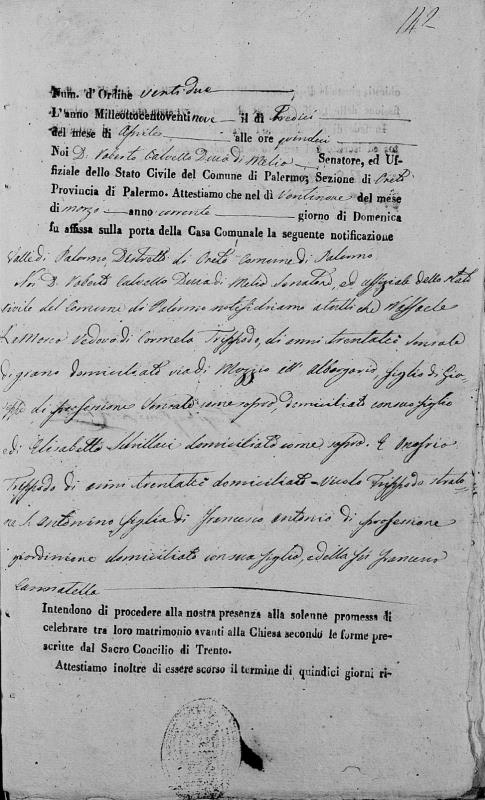 142
Num. d'Ordine ventidue
L'anno Milleottocentoventinove il di Tredici
del mese di Aprile alle ore quindici
Noi D. Roberto Calvello Duca di Melia Senatore, ed Uf-
fiziale dello Stato Civile del Comune di Palermo; Sezione di Oreto
Provincia di Palermo. Attestiamo che nel dì Ventinove del mese
di marzo anno corrente giorno di Domenica
fu affissa sulla porta della Casa Comunale la seguente notificazione
Valle di Palermo, Distretto di Comune di Palermo
Noi D. Roberto Calvello Duca di Melia Senatore, ed uffiziale dello stato
civile del Comune di Palermo notifichiamo a tutti che Raffaele
Lo Monaco Vedovo di Carmela Trippodo, di anni trentatre Sensale
di grano domiciliato via di Mezzo all' Albergaria, figlio di Gio-
di professione Sensale come sopra, domiciliato con suo figlio
e di Elisabetta domiciliata come sopra. E Onofria
Trippodo di anni trentatre domiciliata Vicolo Trippodo strato-
ne S. Antonino figlia di Francesco Antonio di professione
giardiniere domiciliato con sua figlia, e della fu Francesca
Cannatella
Intendono di procedere alla nostra presenza alla solenne promessa di
celebrare tra loro matrimonio avanti alla Chiesa secondo le forme pre-
scritte dal Sacro Concilio di Trento.
Attestiamo inoltre di essere scorso il termine di quindici giorni ri-